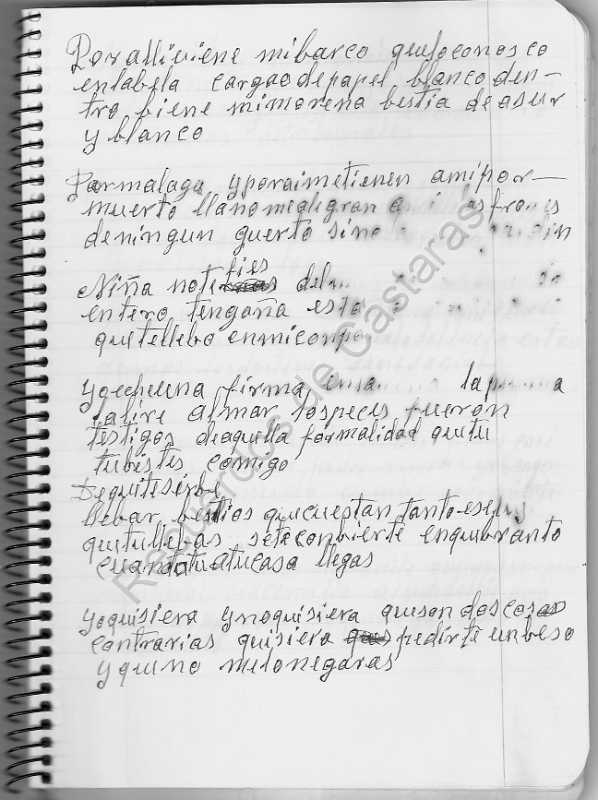 Por alli viene mi barco quelo conosco
en la bela cargao de papel blanco den-
tro biene mi morena bestia de asur
y blanco
Par malaga y por ai me tienen a mi por-
muerto llano mialigran
de ningun guerto sino
Niña note fies del
entero tengaña esta
quite llebo en mi
yo eche una firma la
salire al mar los peces fueron
testigos de aquilla formalidad qui tu
tubistes comigo
De qui te serbe
llebar bestios que cuestan tanto
qui tu llebas sete conbierte en quibranto
cuando tu a tu casa llegas
yo quisiera y no quisiera qui son dos cosas
contrarias quisiera pedirte un beso
y qui no me lo negaras
Recuerdos de Cástaras